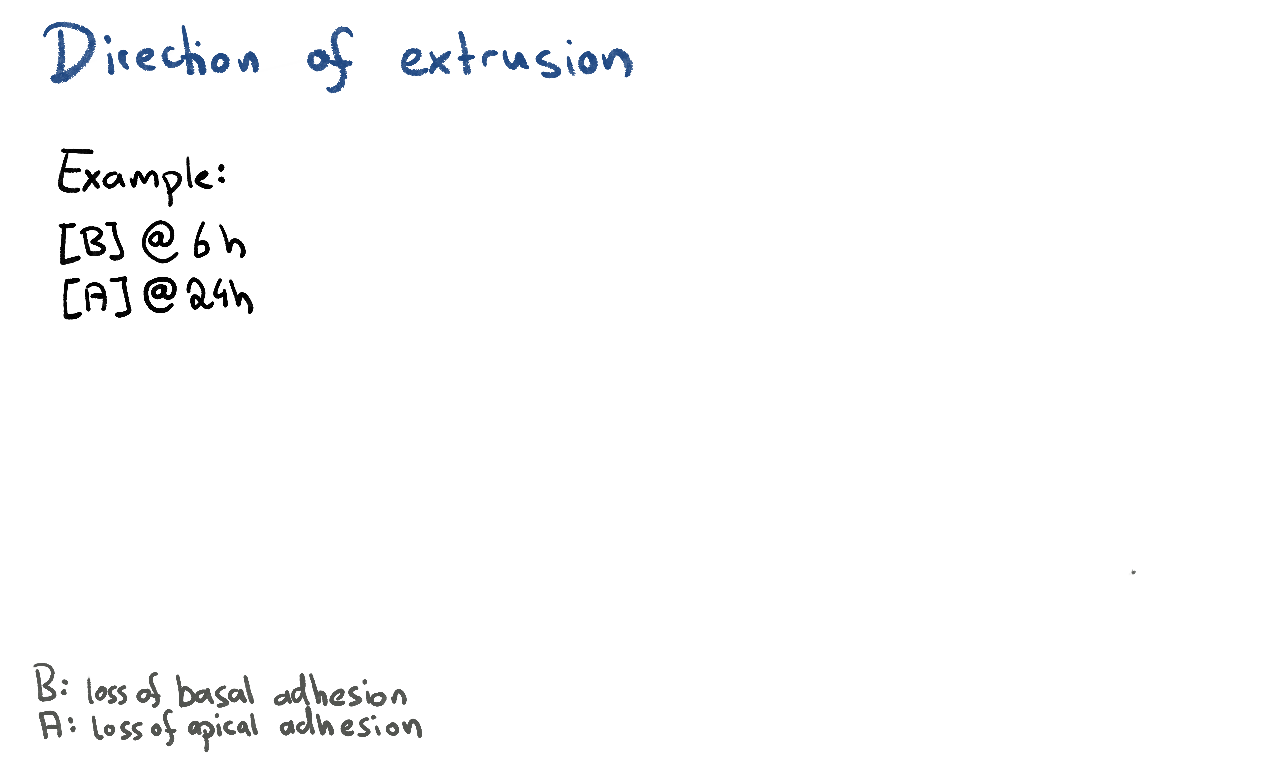 Direction of extrusion
Example:
[B] @ 6h
[A] @ 24h
B: loss of basal adhesion
A: loss of apical adhesion